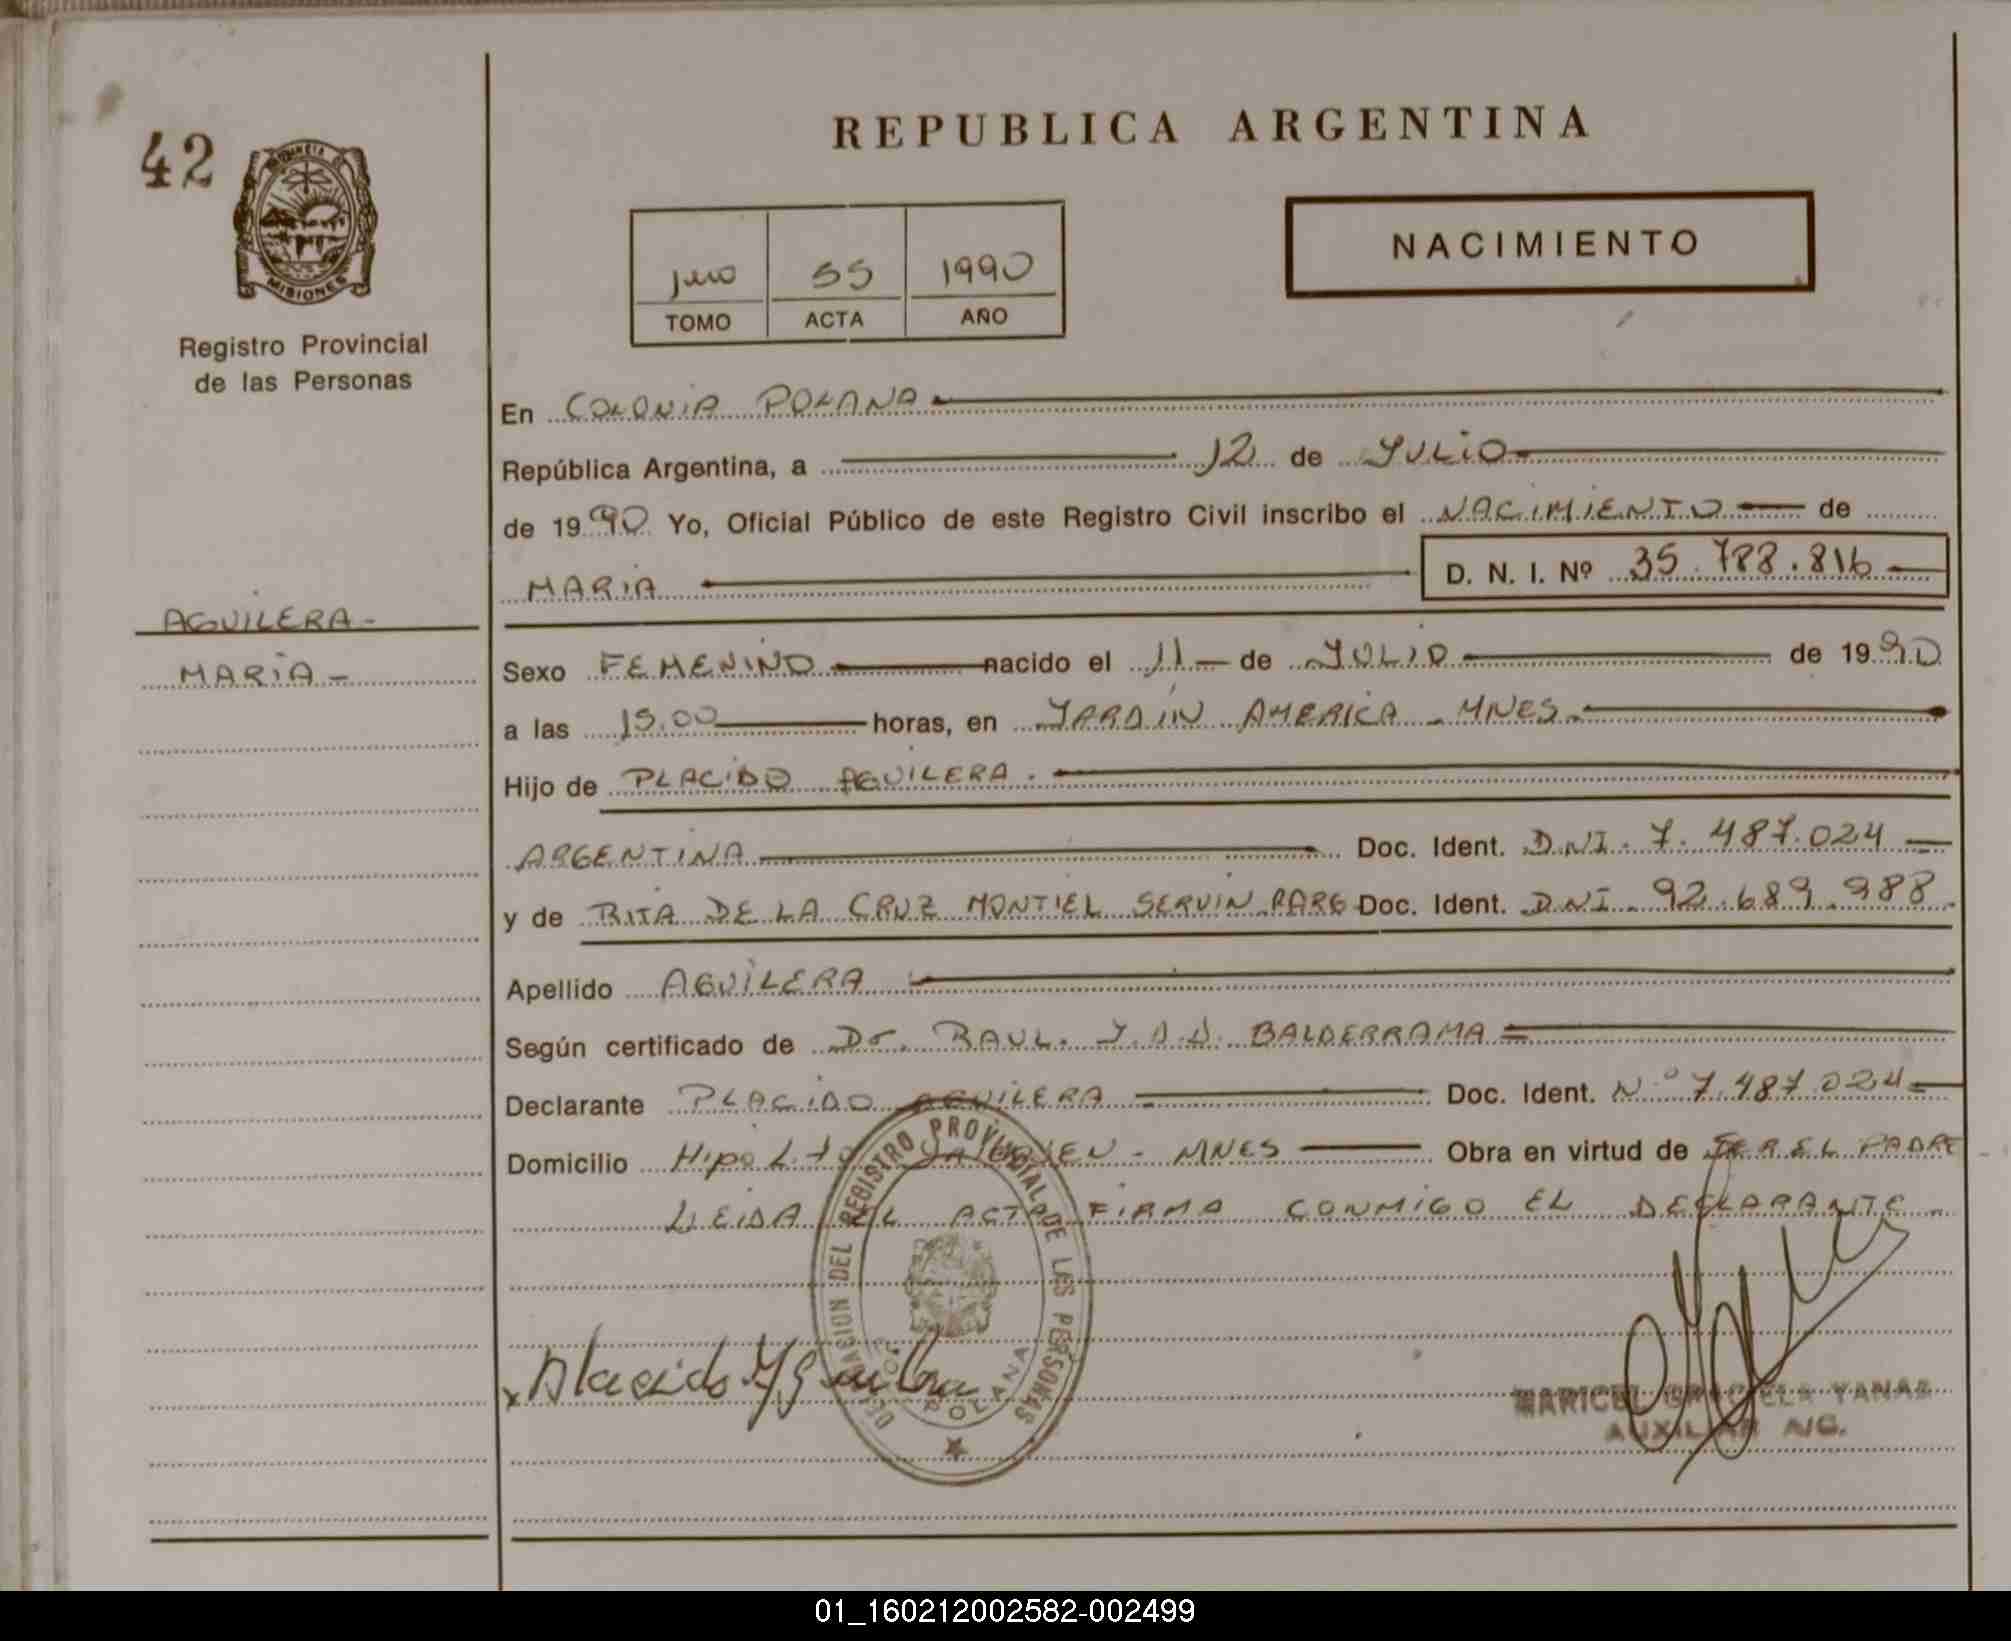 REPUBLICA ARGENTINA
42
PROVINCIA DE
MISIONES
Registro Provincial
de las Personas
55 1990
TOMO ACTA AÑO
NACIMIENTO
En COLONIA POLANA
República Argentina, a 12 de JULIO
de 1990 Yo, Oficial Público de este Registro Civil inscribo el NACIMIENTO de
MARIA D. N. I. Nº 35.788.816
AGUILERA-
MARIA-
Sexo FEMENINO nacido el 11 de JULIO de 1990
a las 15.00 horas, en JARDIN AMERICA - MNES.
Hijo de PLACIDO AGUILERA.
ARGENTINA Doc. Ident. DNI. 7.487.024
y de RITA DE LA CRUZ MONTIEL SERVIN PARG Doc. Ident. DNI. 92.689.988
Apellido AGUILERA
Según certificado de Dr. RAUL. J.D.D. BALDERRAMA
Declarante PLACIDO AGUILERA Doc. Ident. N.º 7.487.024
Domicilio Hipolito YRIGOYEN - MNES Obra en virtud de SER EL PADRE
LEIDA EL ACTA FIRMA CONMIGO EL DECLARANTE
DELEGACION DEL REGISTRO PROVINCIAL DE LAS PERSONAS
POLANA
x Placido Aguilera
MARICEL GRACIELA YANAS
AUXILIAR A/C.
01_160212002582-002499